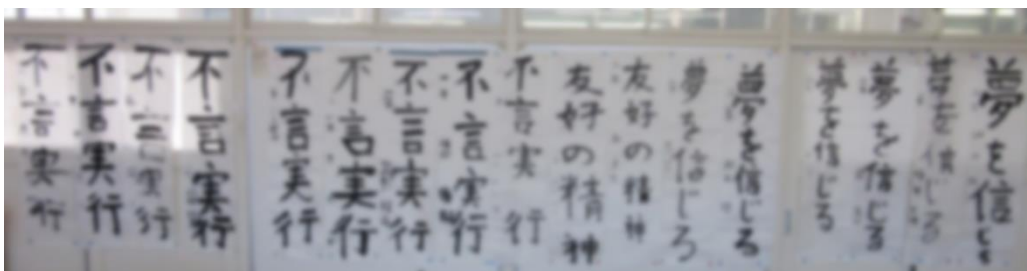 夢を信じろ
夢を信じる
夢を信じる
夢を信じる
夢を信じる
夢を信じろ
友好の精神
友好の精神
不言実行
不言実行
不言実行
不言実行
不言実行
不言実行
不言実行
不言実行
不言実行